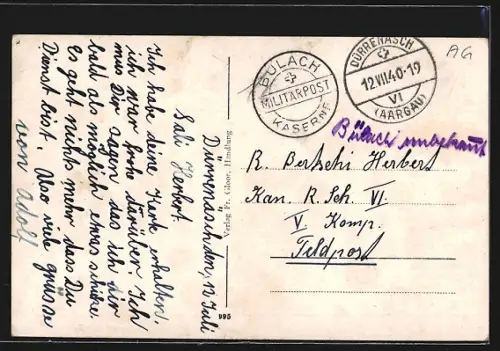 Dürrenäsch den, 13 Juli
Sali Herbert.
Ich habe deine Karte erhalten.
ich war froh darüber. Ich
mus Dir sagen das ich dir
bald als möglich etwas schicke.
Es geht nichts mehr das Du
Dienst bist. Also viele grüsse
von Adolf
Verlag Fr. Gloor, Handlung
995
BÜLACH
MILITÄRPOST
KASERNE
DÜRRENÄSCH
12.VII.40-19
VI
(AARGAU)
AG
Bülach unbekannt
R. Bertschi Herbert
Kan. R. Sch. VI.
V Komp.
Feldpost